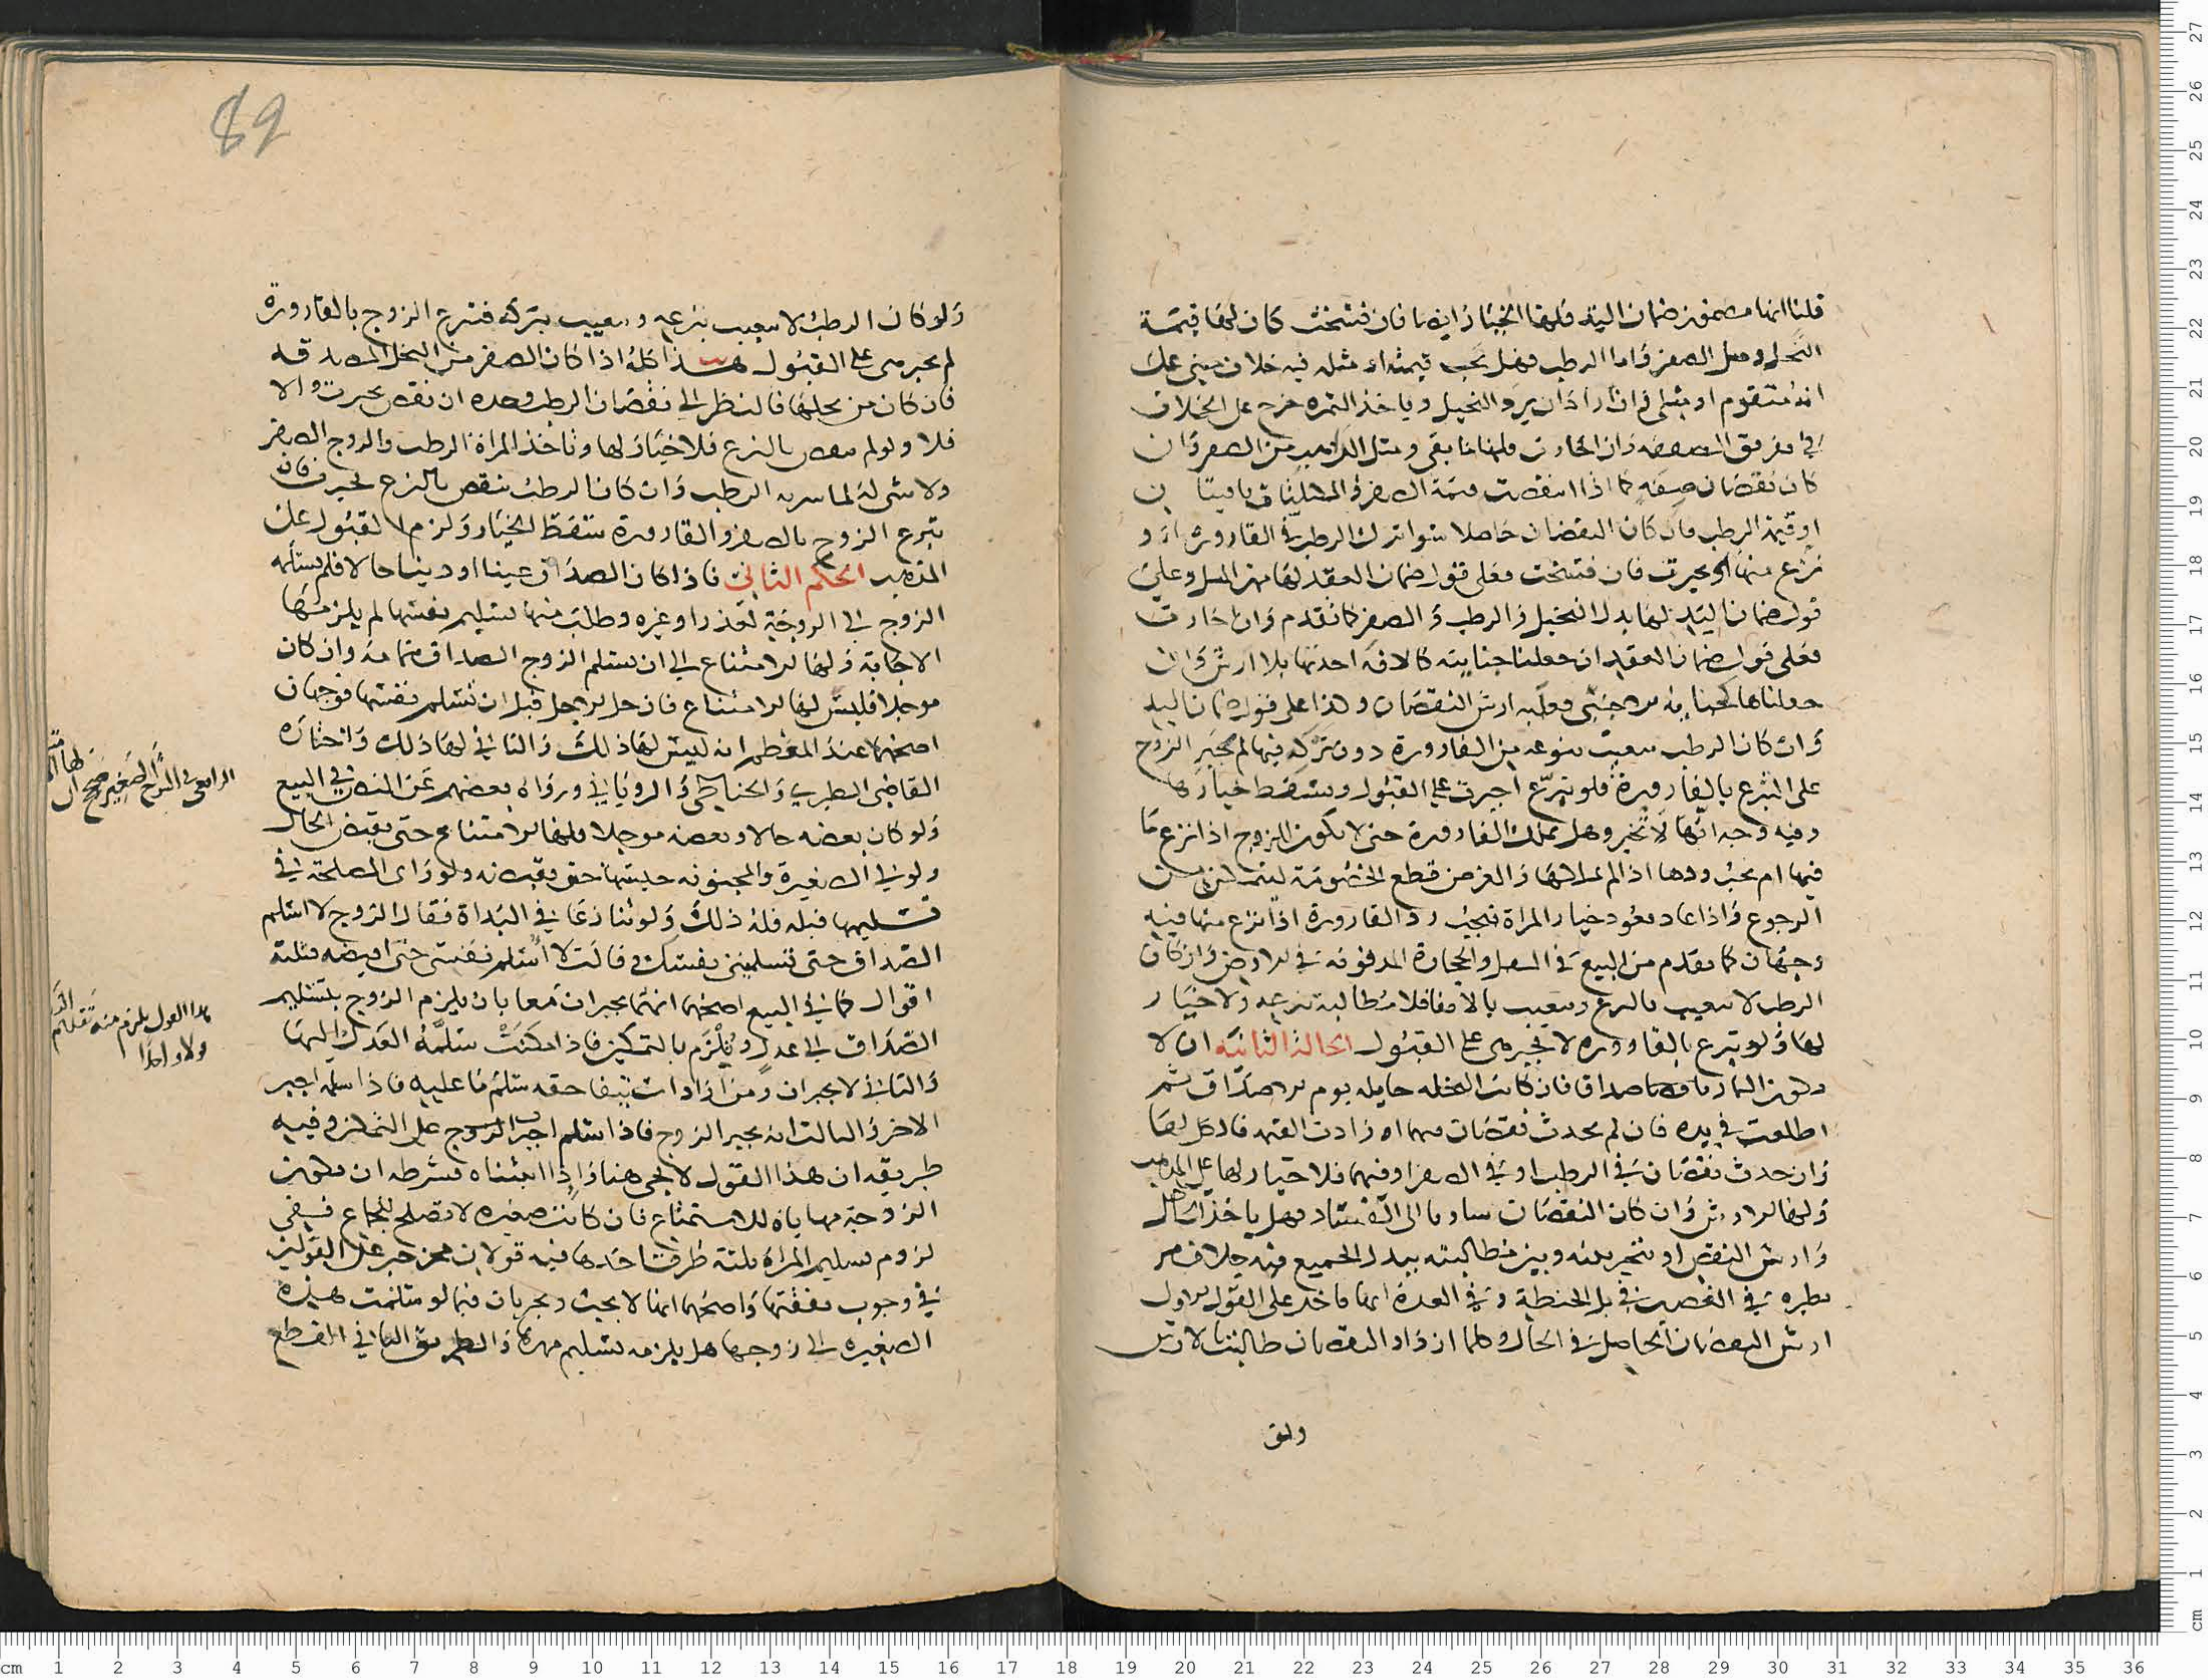 قلنا انها مضمونة ضمان اليد فلها الخيار ايضا فان فسخت كان لها قيمة
النخل ومثل الصقر واما الرطب فهل تجب قيمته او مثله فيه خلاف مبني على
انه متقوم او مثلي فان ارادان يرد النخيل وياخذ الثمرة خرج على الخلاف
في تفريق الصفقة وان اجازت فلها ما بقي ومثل الذاهب من الصقر وان
كان نقصان صفة كما اذا انتقصت قيمة الصقر
او قيمة الرطب فان كان النقصان حاصلا سوا ترك الرطب في القارورة او
نزع منها تخيرت فان فسخت فعلى قول ضمان العقد لها مهر المثل وعلى
قول ضمان اليد لها بدل النخيل والرطب والصقر كما تقدم وان اجازت
فعلى قول ضمان العقد ان جعلنا جنايته كالافة اخذتها بلا ارش وان
جعلناها كجناية الاجنبي فعليه ارش النقصان وهذا على قول ضمان اليد
وان كان الرطب يتعيب بنزعه من القارورة دون تركه فيها لم يجبر الزوج
على التبرع بالقارورة فلو تبرع اجبرت على القبول ويسقط خيارها
وفيه وجه انها لا تجبر وهل تملك القارورة حتى لا يكون للزوج اذا نزع ما
فيها ام يجب ردها اذا لم تملكها والغرض قطع الخصومة ليتمكن من
الرجوع واذا عاد يعود خيار المراة فيجب رد القارورة اذا نزع منها فيه
وجهان كما تقدم من البيع في النعل والحجارة المدفونة في الارض وان كان
الرطب لا يتعيب بالنزع ويتعيب بالابقا فلا مطالبة بنزعه ولا خيار
لها ولو تبرع بالقارورة لا تجبر هي على القبول الحالة الثانية ان لا
يكون الثمار صداقا فان كانت النخلة حايلة يوم الاصداق ثم
اطلعت في يده فان لم يحدث نقصان فيهما او زادت القيمة فالكل لها
وان حدث نقصان في الرطب او في الصقر او فيهما فلا خيار لها على المذهب
ولها الارش وان كان النقصان ساريا الى الفساد فهل ياخذ الحاصل
وارش النقص او يتخير بينه وبين مطالبته ببدل الجميع فيه خلاف مر
نظيره في الغصب في بل الحنطة وفي العدة انها تاخذ على القول الاول
ارش النقصان الحاصل في الحال وكلما ازداد النقصان طالبته بالارش
ولو
82
ولو كان الرطب لا يتعيب بنزعه ويتعيب بتركه فتبرع الزوج بالقارورة
لم تجبر هي على القبول هذا كله اذا كان الصقر من النخل المصدقة
فان كان من نخلها فالنظر الى نقصان الرطب وحده ان نقص تخيرت والا
فلا ولو لم ينقص بالنزع فلا خيار لها وتاخذ المراة الرطب والزوج الصقر
ولا شي له لما تشربه الرطب وان كان الرطب ينقص بالنزع تخيرت فان
تبرع الزوج بالصقر والقارورة سقط الخيار ولزم القبول على
المذهب الحكم الثاني فاذا كان الصداق عينا او دينا حالا فلم يسلمه
الزوج الى الزوجة لعذر او غيره وطلب منها تسليم نفسها لم يلزمها
الاجابة ولها الامتناع الى ان يسلم الزوج الصداق بتمامه وان كان
موجلا فليس لها الامتناع فان حل الاجل قبل ان تسلم نفسها فوجهان
اصحهما عند المعظم انه ليس لها ذلك والثاني لها ذلك واختاره
القاضي الطبري والحناطي والروياني ورواه بعضهم عن النص في البيع
ولو كان بعضه حالا وبعضه موجلا فلها الامتناع حتى يقبض الحال
ولولي الصغيرة والمجنونة حبسها حتى يقبضه ولو راى المصلحة في
تسليمها قبله فله ذلك ولو تنازعا في البداة فقال الزوج لا اسلم
الصداق حتى تسلمين نفسك وقالت لا اسلم نفسي حتى اقبضه فثلثة
اقوال كما في البيع اصحها انهما يجبران معا بان يلزم الزوج بتسليم
الصداق الى عدل وتلزم بالتمكين فاذا مكنت سلمه العدل اليها
والثاني لا يجبران ومن اراد استيفا حقه سلم ما عليه فاذا سلم اجبر
الاخر والثالث انه يجبر الزوج فاذا سلم اجبرت الزوج على التمكين وفيه
طريقه ان هذا القول لا يجي هنا واذا اثبتناه فشرطه ان تكون
الزوجة مهياة للاستمتاع فان كانت صغيرة لا تصلح للجماع ففي
لزوم تسليم المراة ثلثة طرق احدها فيه قولان
في وجوب نفقتها واصحهما انها لا تجب ويجريان فيما لو سلمت هذه
الصغيرة الى زوجها هل يلزمه تسليم مهرها والطريق الثاني القطع
الرافعي في الشرح الصغير صحح ان لها
هذا القول يلزم منه
ولا واحدا